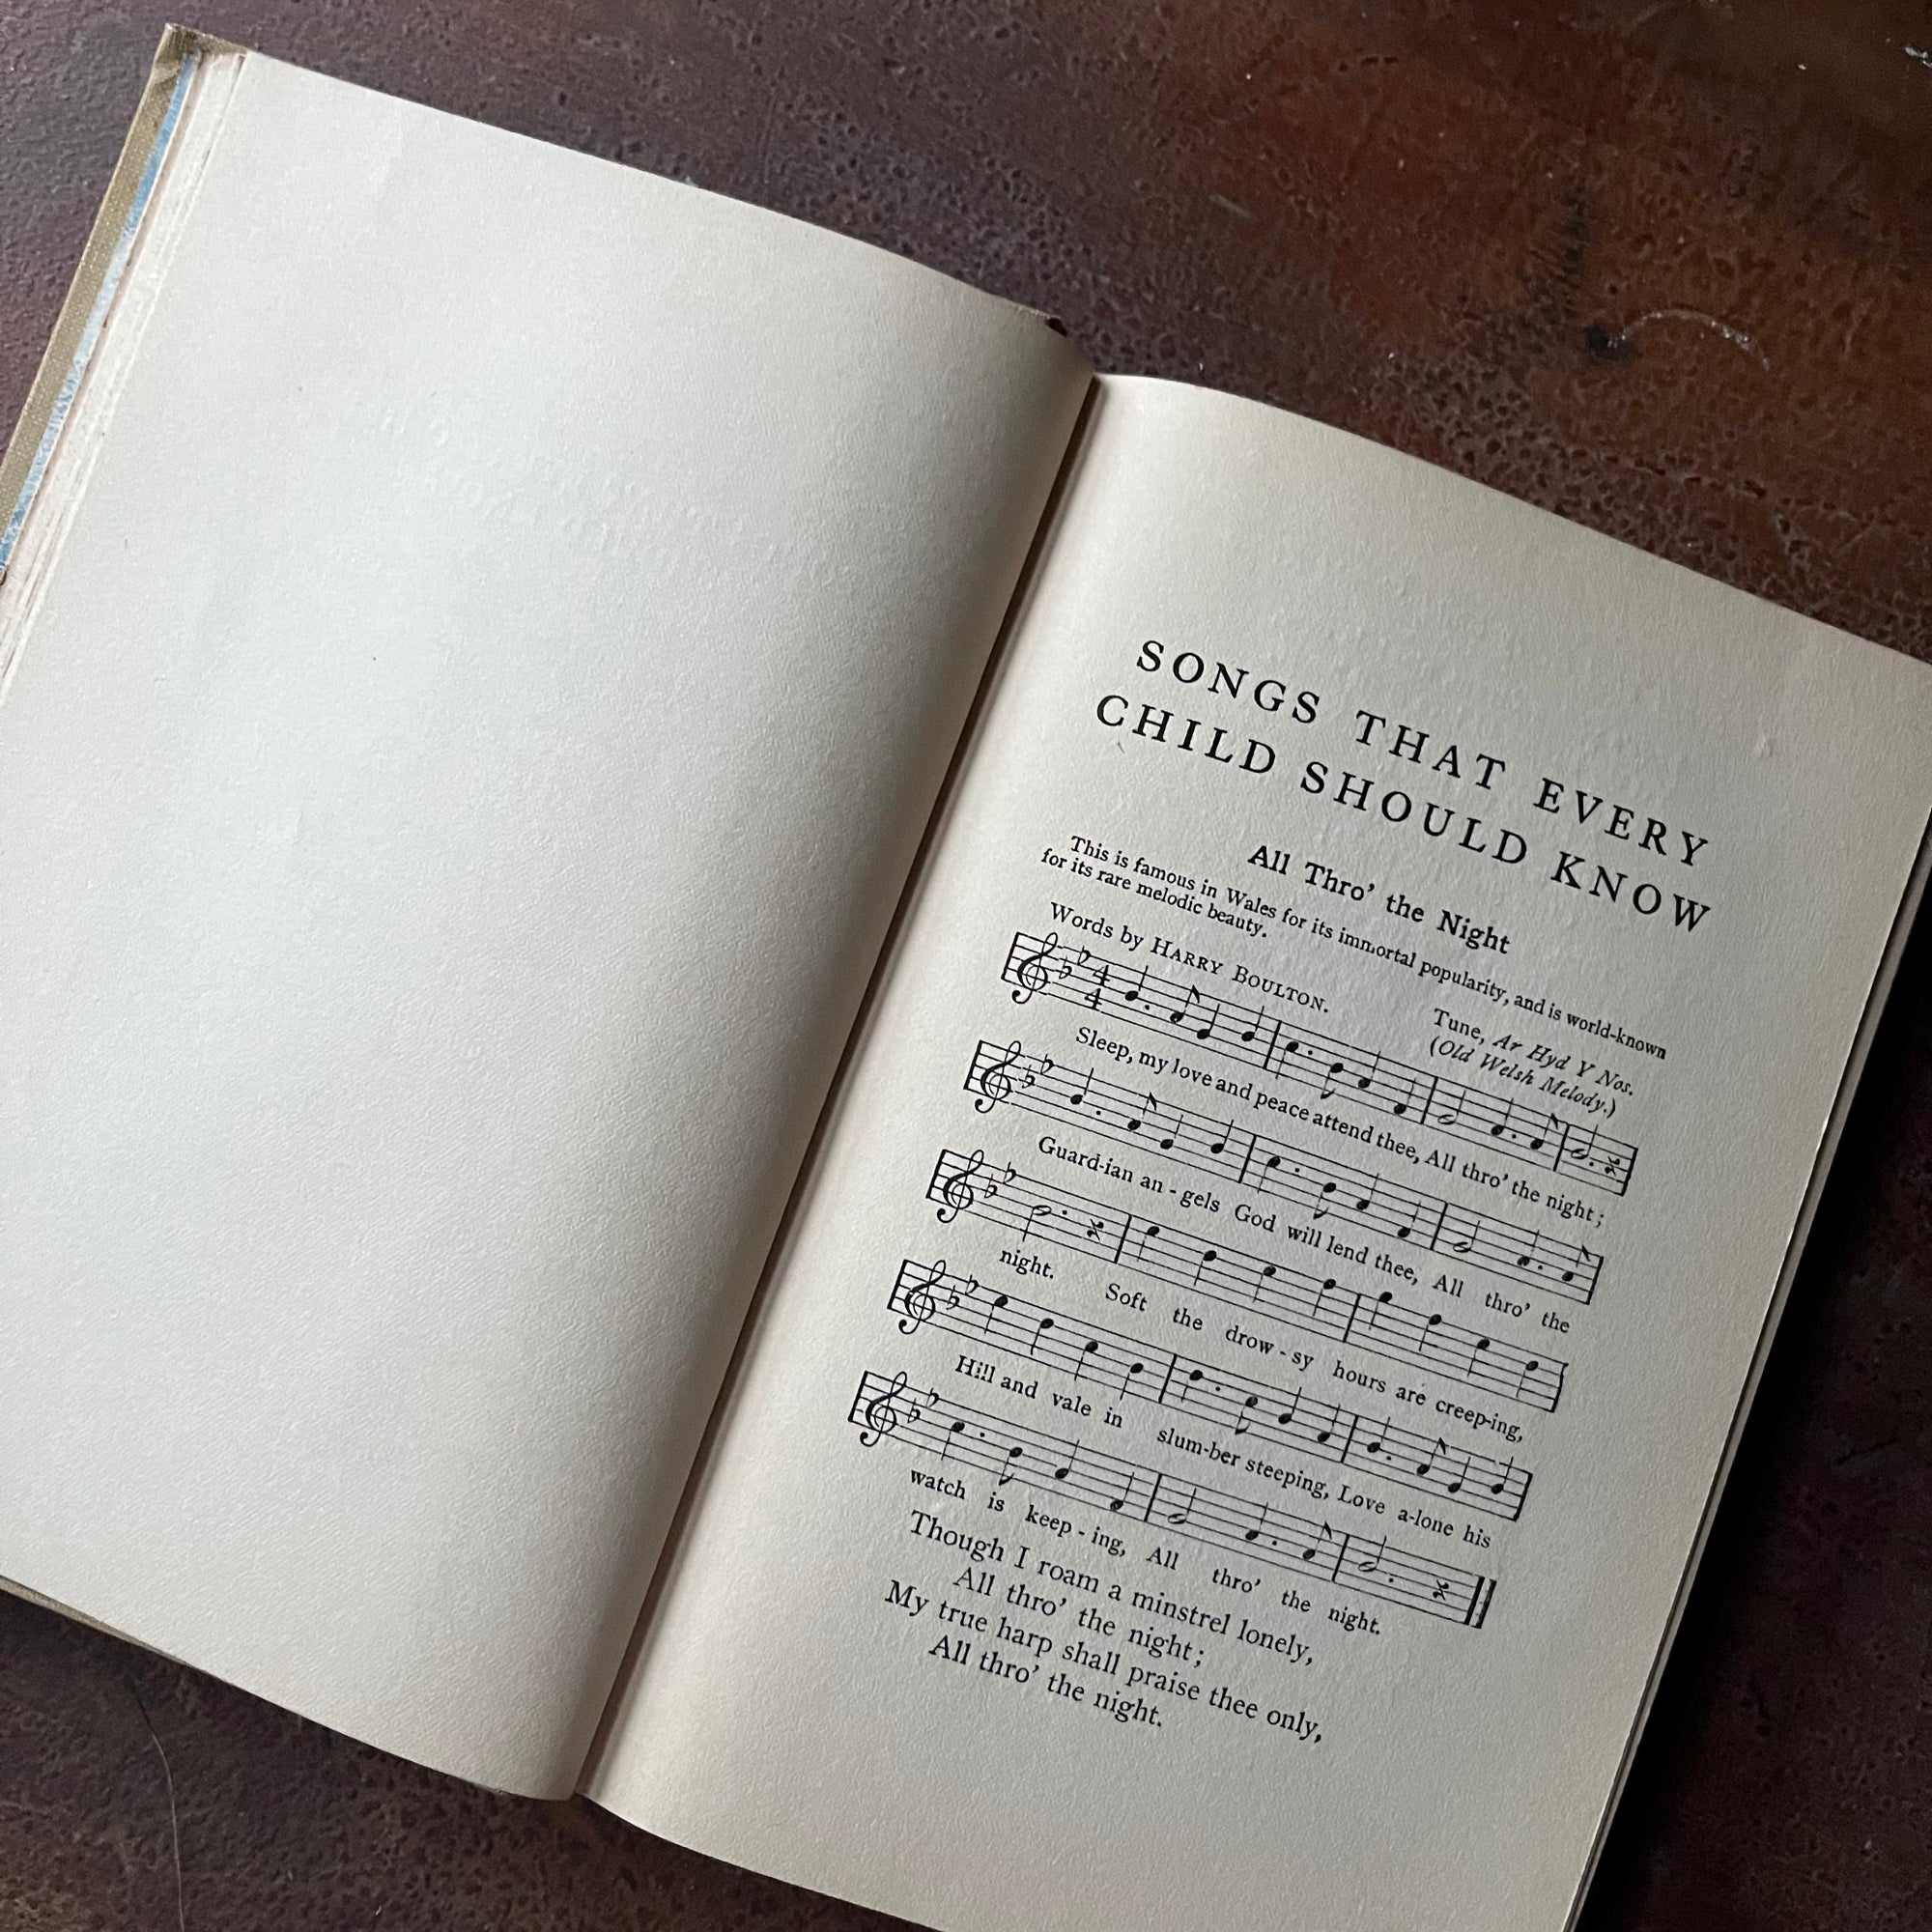 SONGS THAT EVERY
CHILD SHOULD KNOW
All Thro' the Night
This is famous in Wales for its immortal popularity, and is world-known
for its rare melodic beauty.
Words by HARRY BOULTON.
Tune, Ar Hyd Y Nos.
(Old Welsh Melody.)
4
4
Sleep, my love and peace attend thee, All thro' the night;
Guard-ian an - gels God will lend thee, All thro' the
night. Soft the drow - sy hours are creep-ing,
Hill and vale in slum-ber steeping, Love a-lone his
watch is keep - ing, All thro' the night.
Though I roam a minstrel lonely,
All thro' the night;
My true harp shall praise thee only,
All thro' the night.